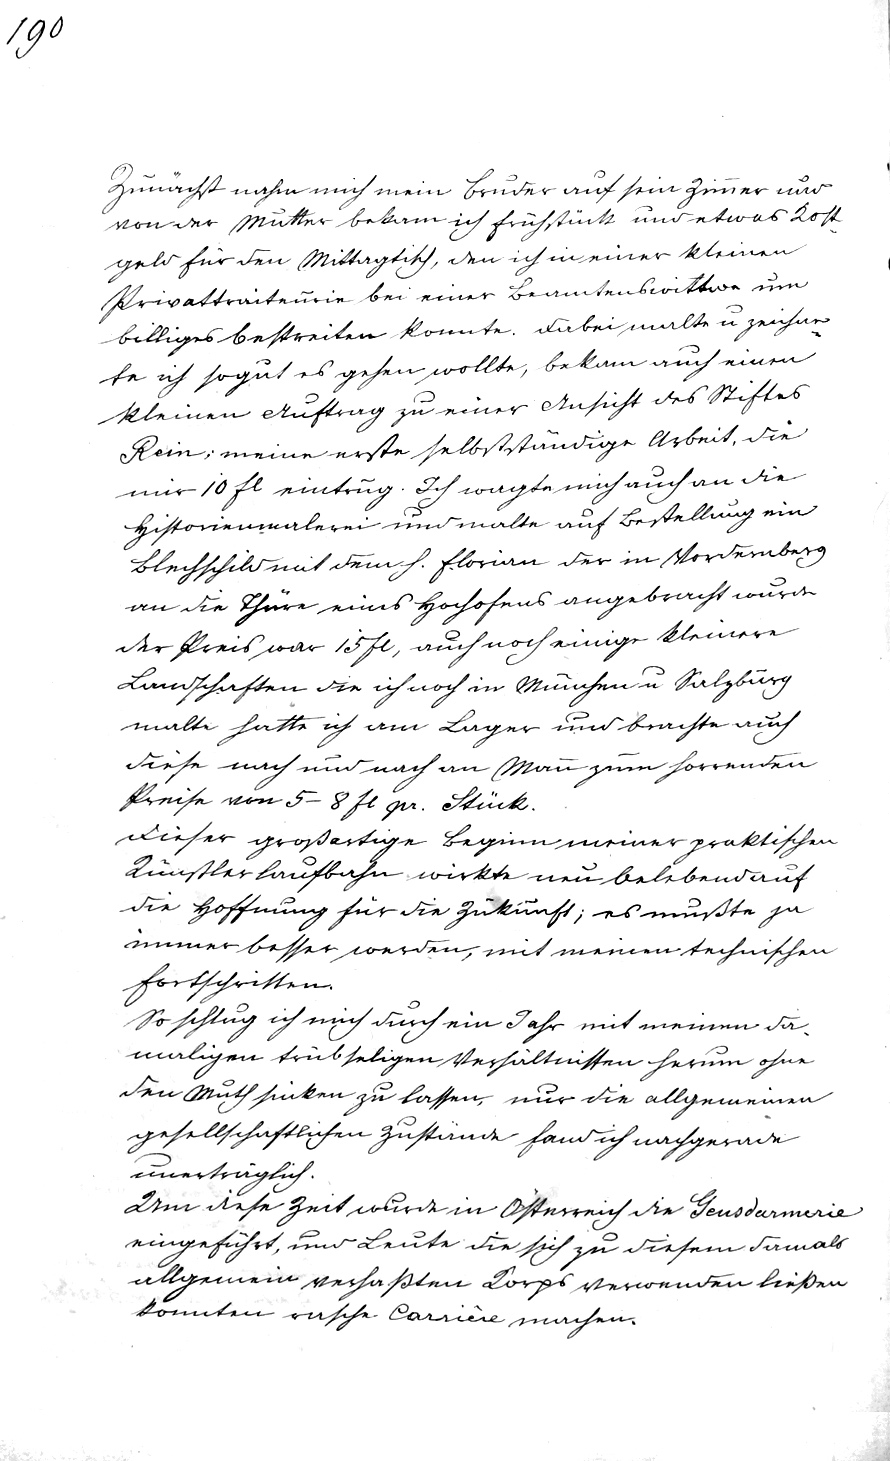 190
Zunächst nahm mich mein Bruder auf sein Zim̅er und
von der Mutter bekam ich Frühstück und etwas Kost-
geld für den Mittagtisch, den ich in einer kleinen
Privattraiteurie bei einer Beamtenswittwe um
billiges bestreiten konnte. Dabei malte u zeichne-
te ich sogut es gehen wollte, bekam auch einen
kleinen Auftrag zu einer Ansicht des Stiftes
Rein; meine erste selbstständige Arbeit, die
mir 10 fl eintrug. Ich wagte mich auch an die
Historienmalerei und malte auf Bestellung ein
Blechschild mit dem h. Florian der in Vordernberg
an die Thüre eines Hochofens angebracht wurde
der Preis war 15 fl, auch noch einige kleinere
Landschaften die ich noch in München u Salzburg
malte hatte ich am Lager und brachte auch
diese nach und nach an Man̅ zum horrenden
Preise von 5– 8 fl pr. Stück.
Dieser großartige Beginn meiner praktischen
Künstlerlaufbahn wirkte neu belebend auf
die Hoffnung für die Zukunft; es mußte ja
immer besser werden, mit meinen technischen
Fortschritten.
So schlug ich mich durch ein Jahr mit meinen da-
maligen trübseligen Verhältnissen herum ohne
den Muth sinken zu lassen, nur die allgemeinen
gesellschaftlichen Zustände fand ich nachgerade
unerträglich.
Um diese Zeit wurde in Österreich die Gensdarmerie
eingeführt, und Leute die sich zu diesem damals
allgemein verhaßten Korps verwenden ließen
konnten rasche Carrière machen.